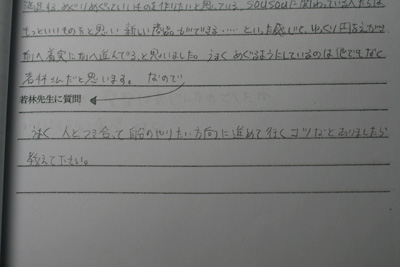 満足は、めぐりめぐっていいものを作りたいと思っている。SOUSOUに関わっている人たちは
もっといいものをと思い 新しい商品ができる……といった感じで、ゆっくり円を
かへ着実に へ進んでる、と思いました。うまく めぐるようにしているのは他でもなく
若林さんだと思います。なので
若林先生に質問
うまく 人とつき合って自分のやりたい方向に進めて行くコツなどありましたら
教えて下さい。